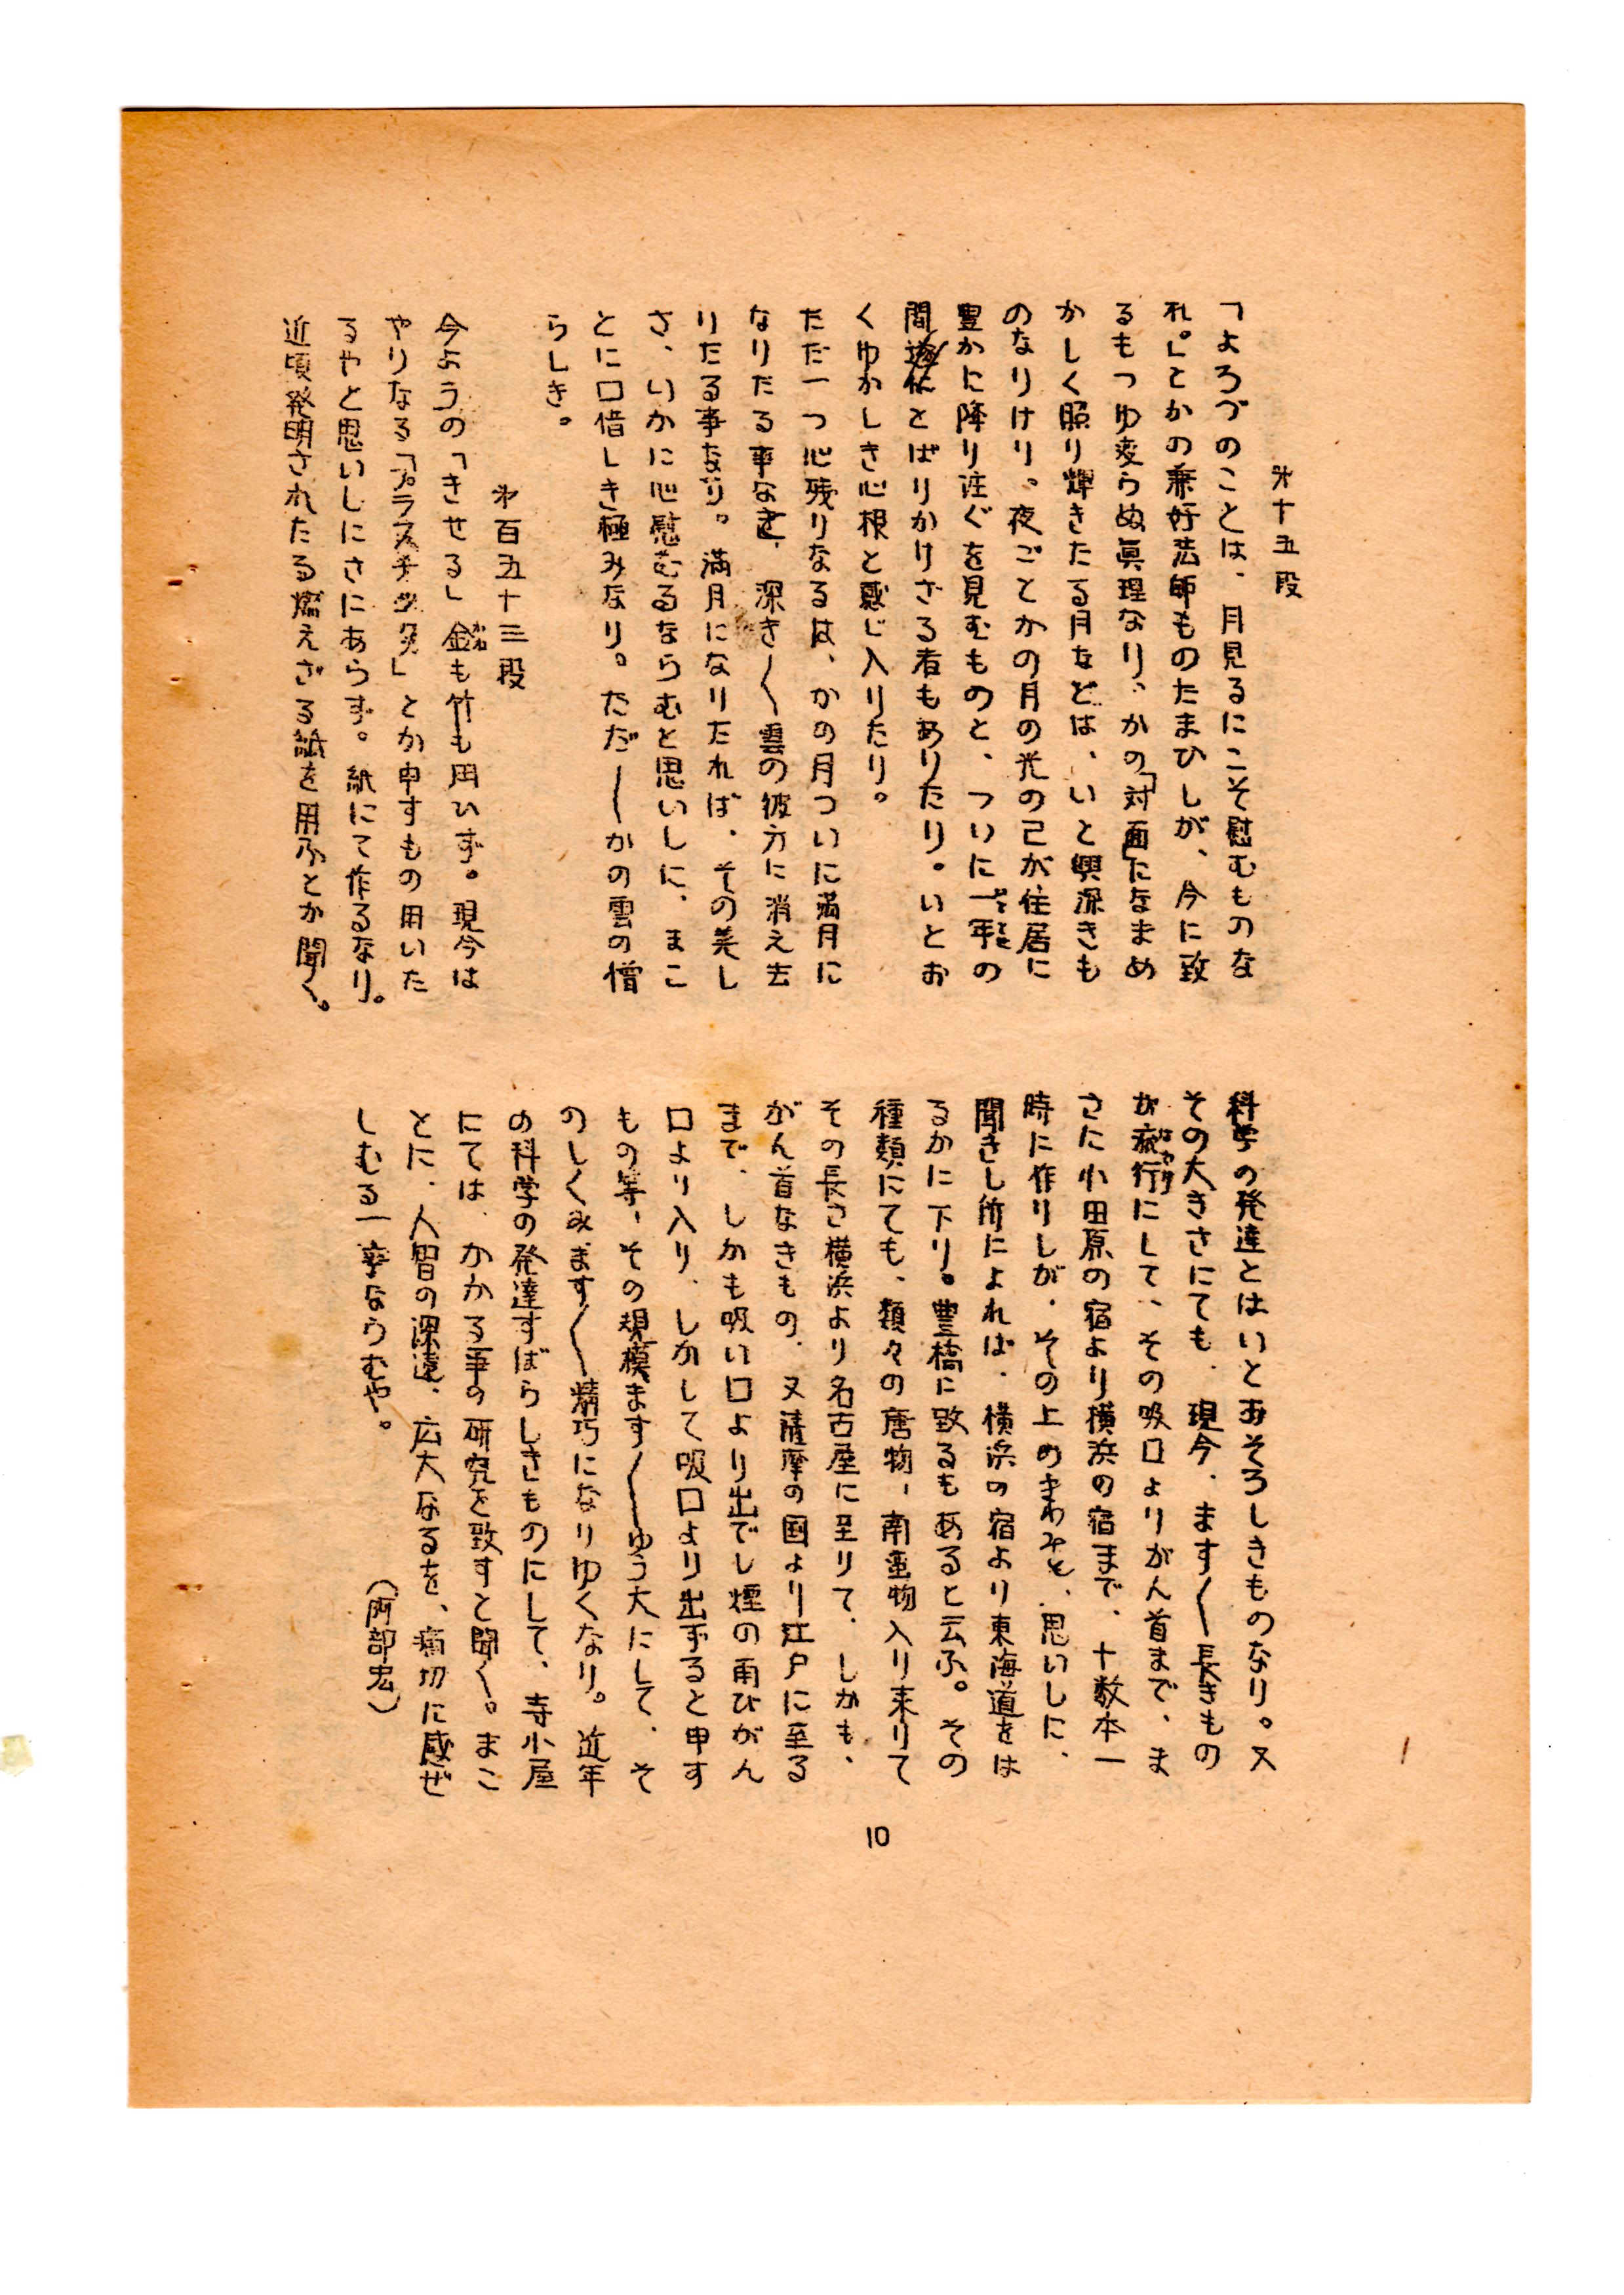 第十五段
「よろづのことは、月見るにこそ慰むものな
れ。」とかの兼好法師ものたまひしが、今に致
るもつゆ変らぬ真理なり、かの「対面」たなまめ
かしく照り輝きたる月などは、いと興深きも
のなりけり。夜ごとかの月の光の己が住居に
豊かに降り注ぐを見むものと、ついに一年の
間とばりかけざる者もありたり。いとお
くゆかしき心根と感じ入りたり。
ただ一つ心残りなるは、かの月ついに満月に
なりたる事なき、深き〳〵雲の彼方に消え去
りたる事なり。満月になりたれば、その美し
さ、いかに心慰むるならむと思いしに、まこ
とに口惜しき極みなり。ただ〳〵かの雲の憎
らしき。
第百五十三段
今ようの「きせる」金も竹も用ひず。現今は
やりなる「プラスチック」とか申すもの用いた
るやと思いしにさにあらず。紙にて作るなり。
近頃発明されたる燃えざる紙を用ふとか聞く。
科学の発達とはいとおそろしきものなり。又
その大きさにても、現今、ます〳〵長きもの
が流行にして、その吸口よりがん首まで、ま
さに小田原の宿より横浜の宿まで、十数本一
時に作りしが、その上のきわみと、思いしに、
聞きし所によれば、横浜の宿より東海道をは
るかに下り。豊橋に致るもあると云ふ。その
種類にても、類々の唐物、南蛮物入り来りて
その長さ横浜より名古屋に至りて、しかも、
がん首なきもの、又薩摩の国より江戸に至る
まで、しかも吸い口より出でし煙の再びがん
口より入り、しかして吸口より出ずると申す
もの等、その規模ます〳〵ゆう大にして、そ
のしくみます〳〵精巧になりゆくなり。近年
の科学の発達すばらしきものにして、寺小屋
にては、かかる事の研究を致すと聞く。まこ
とに、人智の深遠、広大なるを、痛切に感ぜ
しむる一事ならむや。
（阿部宏）
10